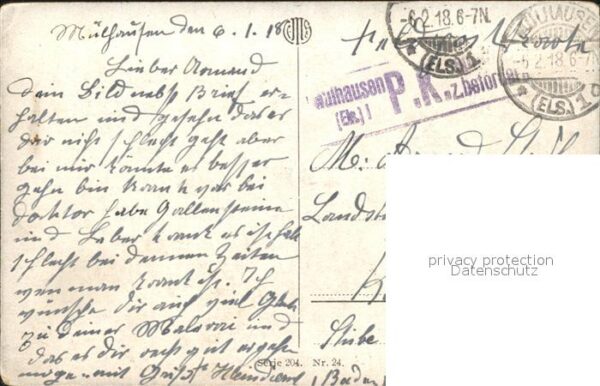 Mülhausen den 6.1.18
Lieber Armand
dein Bild nebst Brief er-
halten und gesehn das es
dir nicht schlecht geht aber
bei mir könnte es besser
gehn bin krank war bei
Doktor habe Gallensteine
und Leber krank es ist halt
schlecht bei dennen Zeiten
wen man krank ist. Ich
wünsche dir auch viel Glück
zu deiner und
das es dir recht gut ergehen
möge mit
Serie 204. Nr. 24.
-6.2.18.6-7N.
(ELS.) 1
MÜLHAUSEN
-6.2.18.6-7N
(ELS.) 1
Feldpostkarte
Mülhausen
(Els.) 1
P.K. z. befördern
M.
Landst
Stube
Baden
privacy protection
Datenschutz